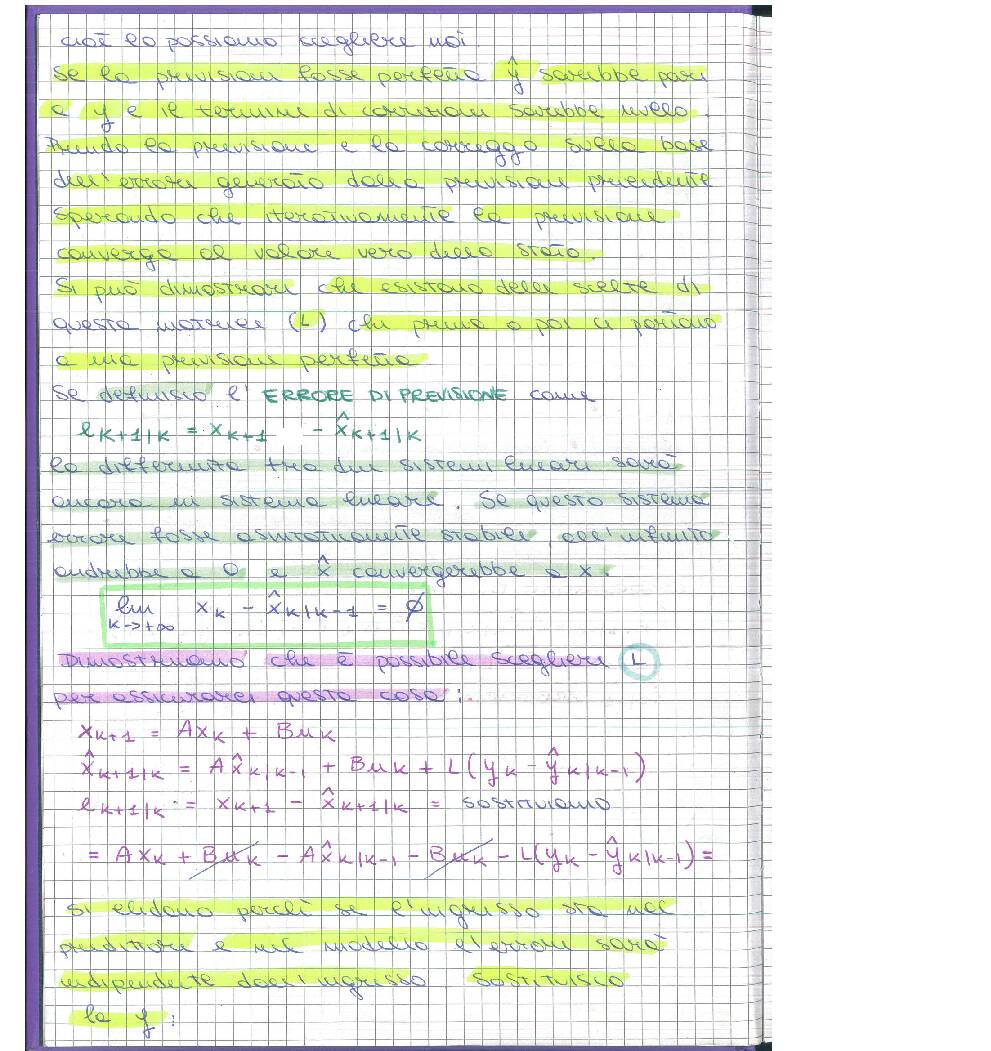 cioè lo possiamo scegliere noi.
Se la previsione fosse perfetta ŷ sarebbe pari
a y e il termine di correzione sarebbe nullo.
Prendo la previsione e la correggo sulla base
dell'errore generato dalla previsione precedente
sperando che iterativamente la previsione
converga al valore vero dello stato.
Si può dimostrare che esistono delle scelte di
questa matrice (L) che prima o poi ci portano
a una previsione perfetta
Se definisco l'ERRORE DI PREVISIONE come
e_{k+1|k} = x_{k+1} - x̂_{k+1|k}
la differenza tra due sistemi lineari sarà
ancora un sistema lineare. Se questo sistema
errore fosse asintoticamente stabile, all'infinito
andrebbe a 0 e x̂ convergerebbe a x.
lim_{k→+∞} x_k - x̂_{k|k-1} = ∅
Dimostriamo che è possibile scegliere L
per assicurarci questa cosa:
x_{k+1} = Ax_k + Bu_k
x̂_{k+1|k} = Ax̂_{k|k-1} + Bu_k + L(y_k - ŷ_{k|k-1})
e_{k+1|k} = x_{k+1} - x̂_{k+1|k} = sostituiamo
= Ax_k + Bu_k - Ax̂_{k|k-1} - Bu_k - L(y_k - ŷ_{k|k-1}) =
si elidono perchè se l'ingresso sta nel
predittore e nel modello l'errore sarà
indipendente dall'ingresso. Sostituisco
la y: